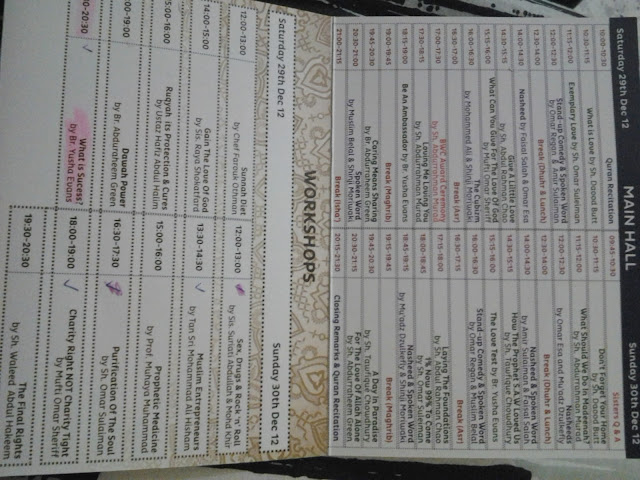 MAIN HALL
Saturday 29th Dec 12
10:00-10:30
Quran Recitation
10:30-11:15
What is Love by Sh. Daood Butt
11:15-12:00
Exemplary Love by Sh. Omar Suleiman
12:00-12:30
Stand-up Comedy & Spoken Word
by Omar Regan & Amir Sulaiman
12:30-14:00
Break (Dhuhr & Lunch)
14:00-14:30
Nasheed by Faisal Salah & Omar Esa
14:30-15:15
Give A Little Love
by Sh. Abdullah Rahman Chao
15:15-16:00
What Can You Give For The Love Of God
by Mufti Omar Sheriff
16:00-16:30
The Cubicle
by Mohammed Ali & Shinji Moriwaki
16:30-17:00
Break (Asr)
17:00-17:30
Sh. Abdurrahman Murad
17:30-18:15
Losing Me Loving You
by Sh. Abdurrahman Murad
18:15-19:00
Be An Ambassador by Br. Yusha Evans
19:00-19:45
Break (Maghrib)
19:45-20:30
Caring Means Sharing
by Br. Abdurraheem Green
20:30-21:00
Spoken Word
by Muslim Belal & Shinji Moriwaki
21:00-21:15
Break (Isha')
Sunday 30th Dec 12
Sisters Q & A
09:45-10:30
Don't Forget Your Home
by Sh. Daood Butt
10:30-11:15
What Should We Do In Madeenah?
by Sh. Abdurrahman Murad
11:15-12:00
Nasheeds
by Omar Esa and Mu'adz Dzulkefly
12:00-12:30
Break (Dhuhr & Lunch)
12:30-14:00
Nasheed & Spoken Word
by Amir Sulaiman & Faisal Salah
14:00-14:30
How The Prophet S.A.W Loved Us
by Sh. Tawfique Chowdhury
14:30-15:15
The Love Test by Br. Yusha Evans
15:15-16:00
Stand-up Comedy & Spoken Word
by Omar Regan & Muslim Belal
16:00-16:30
Break (Asr)
16:30-17:15
Laying The Foundations
by Sh. Abdullah Rahman Chao
17:15-18:00
1's Now 99% To Come
18:00-18:45
Nasheed & Spoken Word
by Mu'adz Dzulkefly & Shinji Moriwaki
18:45-19:15
Break (Maghrib)
19:15-19:45
A Day In Paradise
by Sh. Tawfique Chowdhury
19:45-20:30
For The Love Of Allah Alone
by Sh. Abdurraheem Green
20:15-21:30
Closing Remarks & Quran Recitation
WORKSHOPS
Saturday 29th Dec 12
12:00-13:00
Sunnah Diet
by Chef Farouk Othman
14:00-15:00
Gain The Love Of God
by Sis. Raya Shokatfard
15:00-16:00
Ruqyah :Its Protection & Cures
by Ustaz Hafiz Abdul Halim
00-19:00
Dawah Power
by Br. Abdurraheem Green
0-20:30
What Is Sucess?
by Br. Yusha Evans
Sunday 30th Dec 12
12:00-13:00
Sex, Drugs & Rock 'n' Roll
by Sis. Suriati Abdullah & Mohd Khir
13:30-14:30
Muslim Entrepreneurs
by Tan Sri Mohammad Ali Hisham
15:00-16:00
Prophetic Medicine
by Prof. Muhaya Muhammad
16:30-17:30
Purification Of The Soul
by Sh. Omar Sulaiman
18:00-19:00
Charity Right NOT Charity Tight
by Mufti Omar Sheriff
19:30-20:30
The Final Rights
by Sh. Waleed Abdul Hakeem